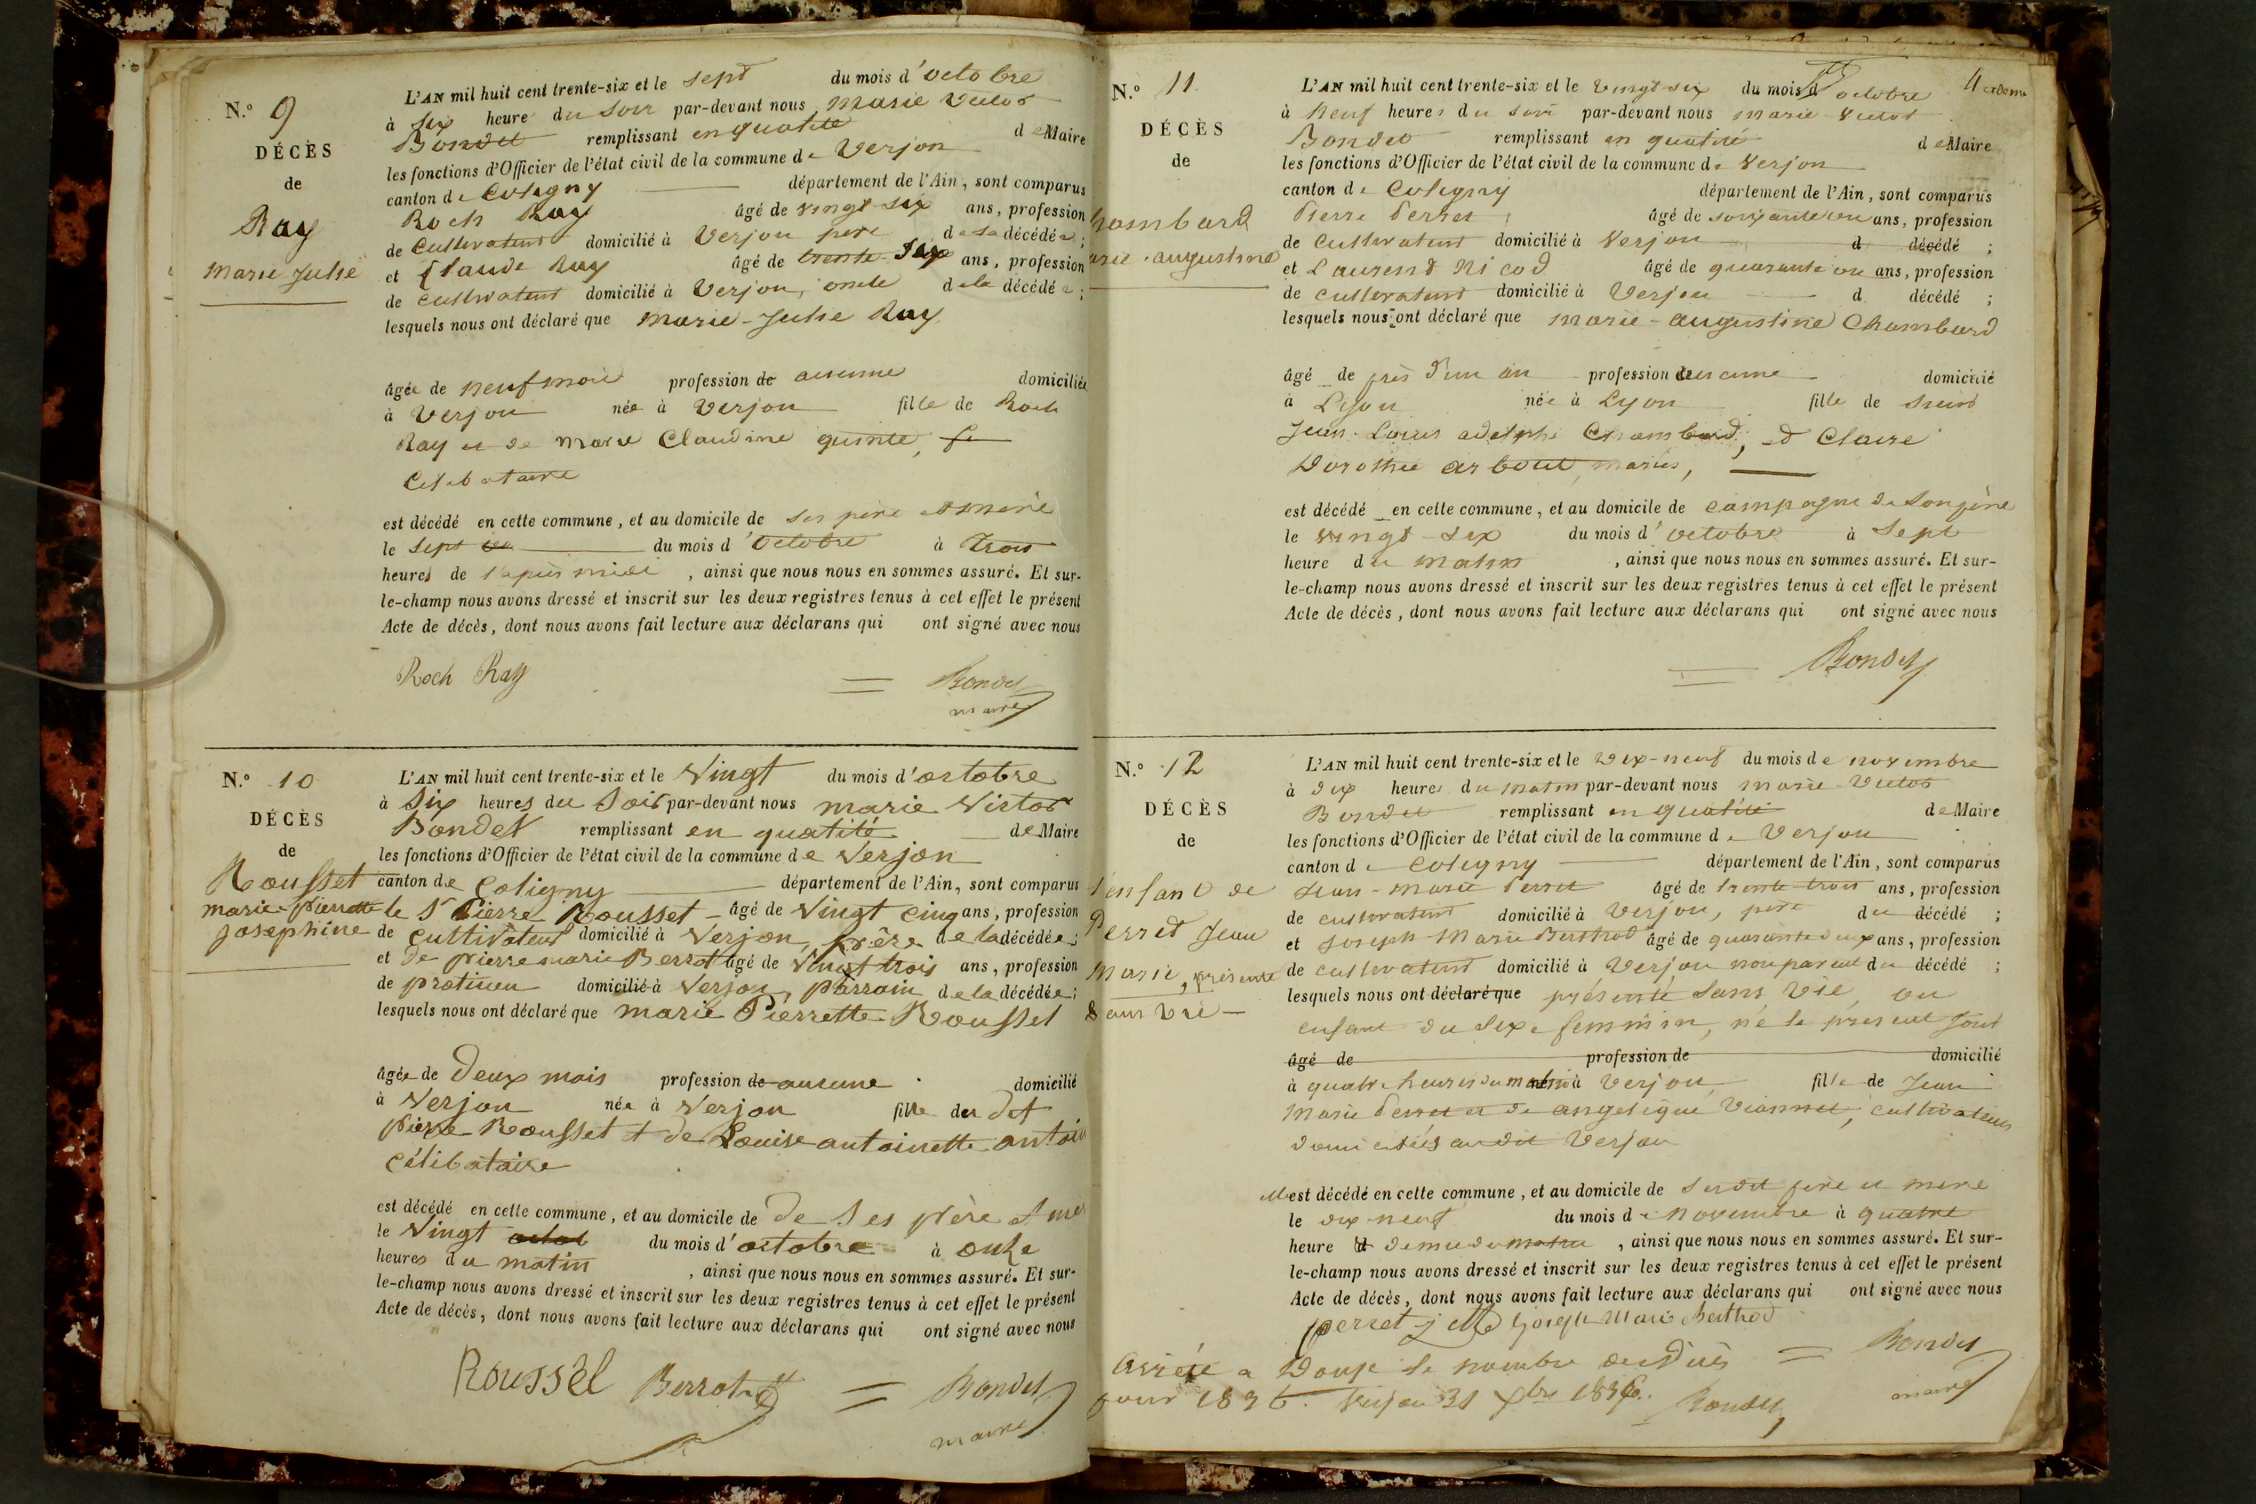 N.º 9
DÉCÈS
de
Ray
Marie Julie
L'AN mil huit cent trente-six et le sept du mois d'octobre
à six heure du soir par-devant nous Marie Victor
Bondet remplissant en qualité de Maire
les fonctions d'Officier de l'état civil de la commune de Verjon
canton de Coligny département de l'Ain, sont comparus
Roch Ray âgé de vingt-six ans, profession
de Cultivateur domicilié à Verjon père de la décédée ;
et Claude Ray âgé de trente-six ans, profession
de cultivateur domicilié à Verjon, oncle de la décédée ;
lesquels nous ont déclaré que Marie-Julie Ray
âgée de neuf mois profession de aucune domiciliée
à Verjon née à Verjon fille de Roch
Ray et de Marie Claudine quinte,
Célibataire
est décédé en cette commune, et au domicile de ses père et mère
le sept du mois d'octobre à trois
heures de l'après midi, ainsi que nous nous en sommes assuré. Et sur-
le-champ nous avons dressé et inscrit sur les deux registres tenus à cet effet le présent
Acte de décès, dont nous avons fait lecture aux déclarans qui ont signé avec nous
Roch Ray Bondet
maire
N.º 10
DÉCÈS
de
Rousset
marie-pierrette
josephine
L'AN mil huit cent trente-six et le Vingt du mois d'octobre
à Six heures du Soir par-devant nous marie Victor
Bondet remplissant en qualité de Maire
les fonctions d'Officier de l'état civil de la commune de Verjon
canton de Coligny département de l'Ain, sont comparus
le Sr Pierre Rousset âgé de Vingt cinq ans, profession
de Cultivateur domicilié à Verjon, père de la décédée ;
et de pierre marie Berrot âgé de Vingt trois ans, profession
de praticien domicilié à Verjon, parrain de la décédée ;
lesquels nous ont déclaré que marie Pierrette Rousset
âgée de Deux mois profession de aucune domicilié
à Verjon née à Verjon fille du dit
pierre Rousset et de Louise antoinette
célibataire
est décédé en cette commune, et au domicile de de Ses père et
le Vingt du mois d'octobre à onze
heures du matin, ainsi que nous nous en sommes assuré. Et sur-
le-champ nous avons dressé et inscrit sur les deux registres tenus à cet effet le présent
Acte de décès, dont nous avons fait lecture aux déclarans qui ont signé avec nous
Roussel Berrot Bondet
maire
N.º 11
DÉCÈS
de
hambard
arie-augustine
L'AN mil huit cent trente-six et le vingt-six du mois d octobre
à neuf heures du soir par-devant nous marie-Victor
Bondet remplissant en qualité de Maire
les fonctions d'Officier de l'état civil de la commune de Verjon
canton de Coligny département de l'Ain, sont comparus
Pierre Perret âgé de soixante un ans, profession
de Cultivateur domicilié à Verjon d décédé ;
et Laurent Nicod âgé de quarante un ans, profession
de cultivateur domicilié à Verjon d décédé ;
lesquels nous ont déclaré que marie-augustine Chambard
âgé de près d'un an profession aucune domicilié
à Lyon née à Lyon fille de sieur
Jean-Louis adolphe Chambard, et Claire
Dorothée mariés,
est décédé en cette commune, et au domicile de campagne de
le vingt-six du mois d'octobre à sept
heure du matin, ainsi que nous nous en sommes assuré. Et sur-
le-champ nous avons dressé et inscrit sur les deux registres tenus à cet effet le présent
Acte de décès, dont nous avons fait lecture aux déclarans qui ont signé avec nous
Bondet
N.º 12
DÉCÈS
de
l'enfant de
Perret Jean
Marie, présenté
Sans Vie
L'AN mil huit cent trente-six et le dix-neuf du mois de novembre
à dix heures du matin par-devant nous marie-Victor
Bondet remplissant en qualité de Maire
les fonctions d'Officier de l'état civil de la commune de Verjon
canton de Coligny département de l'Ain, sont comparus
Jean-Marie Perret âgé de trente-trois ans, profession
de cultivateur domicilié à Verjon, père du décédé ;
et Joseph-Marie Berthod âgé de quarante deux ans, profession
de cultivateur domicilié à Verjon non parent du décédé ;
lesquels nous ont déclaré que présenté sans vie, un
enfant du sexe feminin, né le present jour
âgé de profession de domicilié
à quatre heures du matin à Verjon, fille de Jean
Marie Perret et de angelique Viannet, cultivateurs
domiciliés audit Verjon
est décédé en cette commune, et au domicile de père et mère
le dix neuf du mois de Novembre à quatre
heure et demie du matin, ainsi que nous nous en sommes assuré. Et sur-
le-champ nous avons dressé et inscrit sur les deux registres tenus à cet effet le présent
Acte de décès, dont nous avons fait lecture aux déclarans qui ont signé avec nous
perret Joseph Marie Berthod
Bondet
maire
Arrêté a Douze le nombre des Décès
pour 1836. Verjon 31 Xbre 1836. Bondet